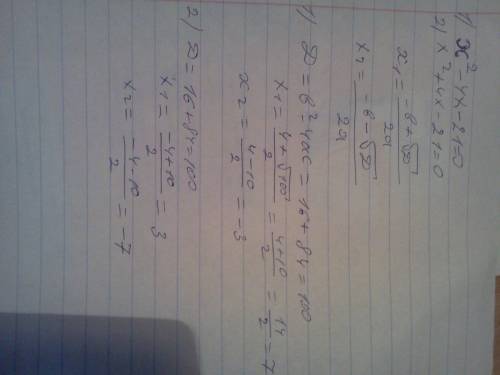 1) x²-4x-21=0
2) x²+4x-21=0
x₁ = (-в+√D)/2a
x₂ = (-в-√D)/2a
1) D = в²-4ac = 16+84=100
x₁ = (4+√100)/2 = (4+10)/2 = 14/2 = 7
x₂ = (4-10)/2 = -3
2) D = 16+84=100
x₁ = (-4+10)/2 = 3
x₂ = (-4-10)/2 = -7